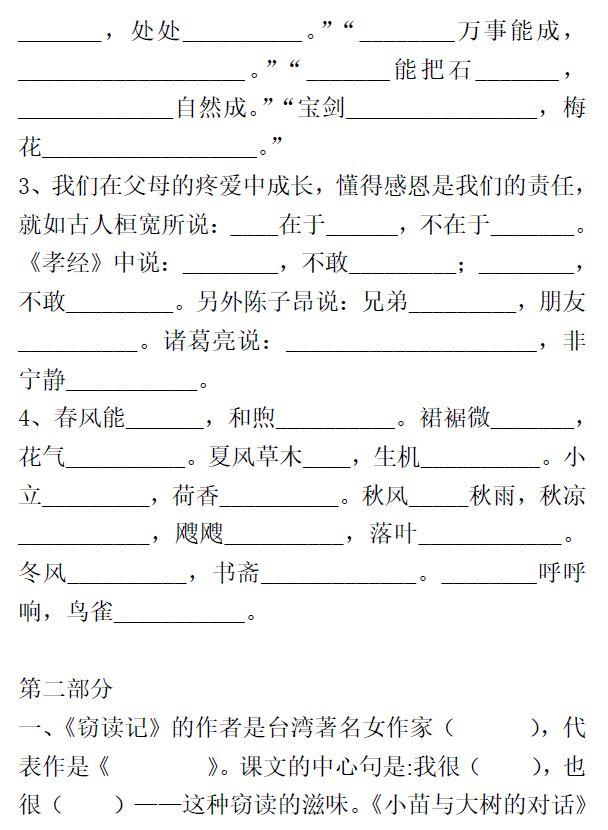 _______，处处__________。”“________万事能成，
___________________。”“_______能把石_______，
_____________自然成。”“宝剑________________，梅
花__________________。”
3、我们在父母的疼爱中成长，懂得感恩是我们的责任，
就如古人桓宽所说：____在于______，不在于_______。
《孝经》中说：________，不敢_________；________，
不敢_________。另外陈子昂说：兄弟_________，朋友
__________。诸葛亮说：_____________________，非
宁静___________。
4、春风能_______，和煦__________。裙裾微_______，
花气__________。夏风草木____，生机__________。小
立_________，荷香__________。秋风_____秋雨，秋凉
___________，飕飕__________，落叶____________。
冬风__________，书斋_____________。________呼呼
响，鸟雀___________。
第二部分
一、《窃读记》的作者是台湾著名女作家（　　　），代
表作是《　　　　》。课文的中心句是:我很（　　），也
很（　　）——这种窃读的滋味。《小苗与大树的对话》